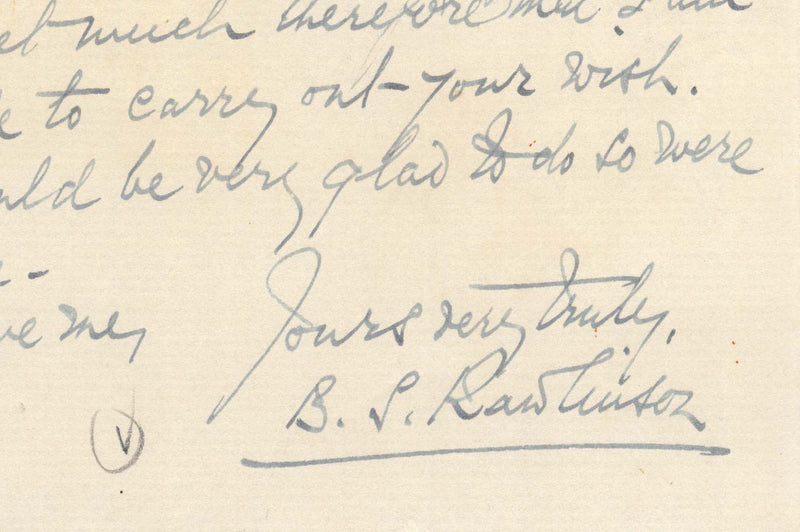 much therefore that I am
to carry out your wish.
be very glad to do so were
me,
Yours very truly,
B. S. Rawlinson